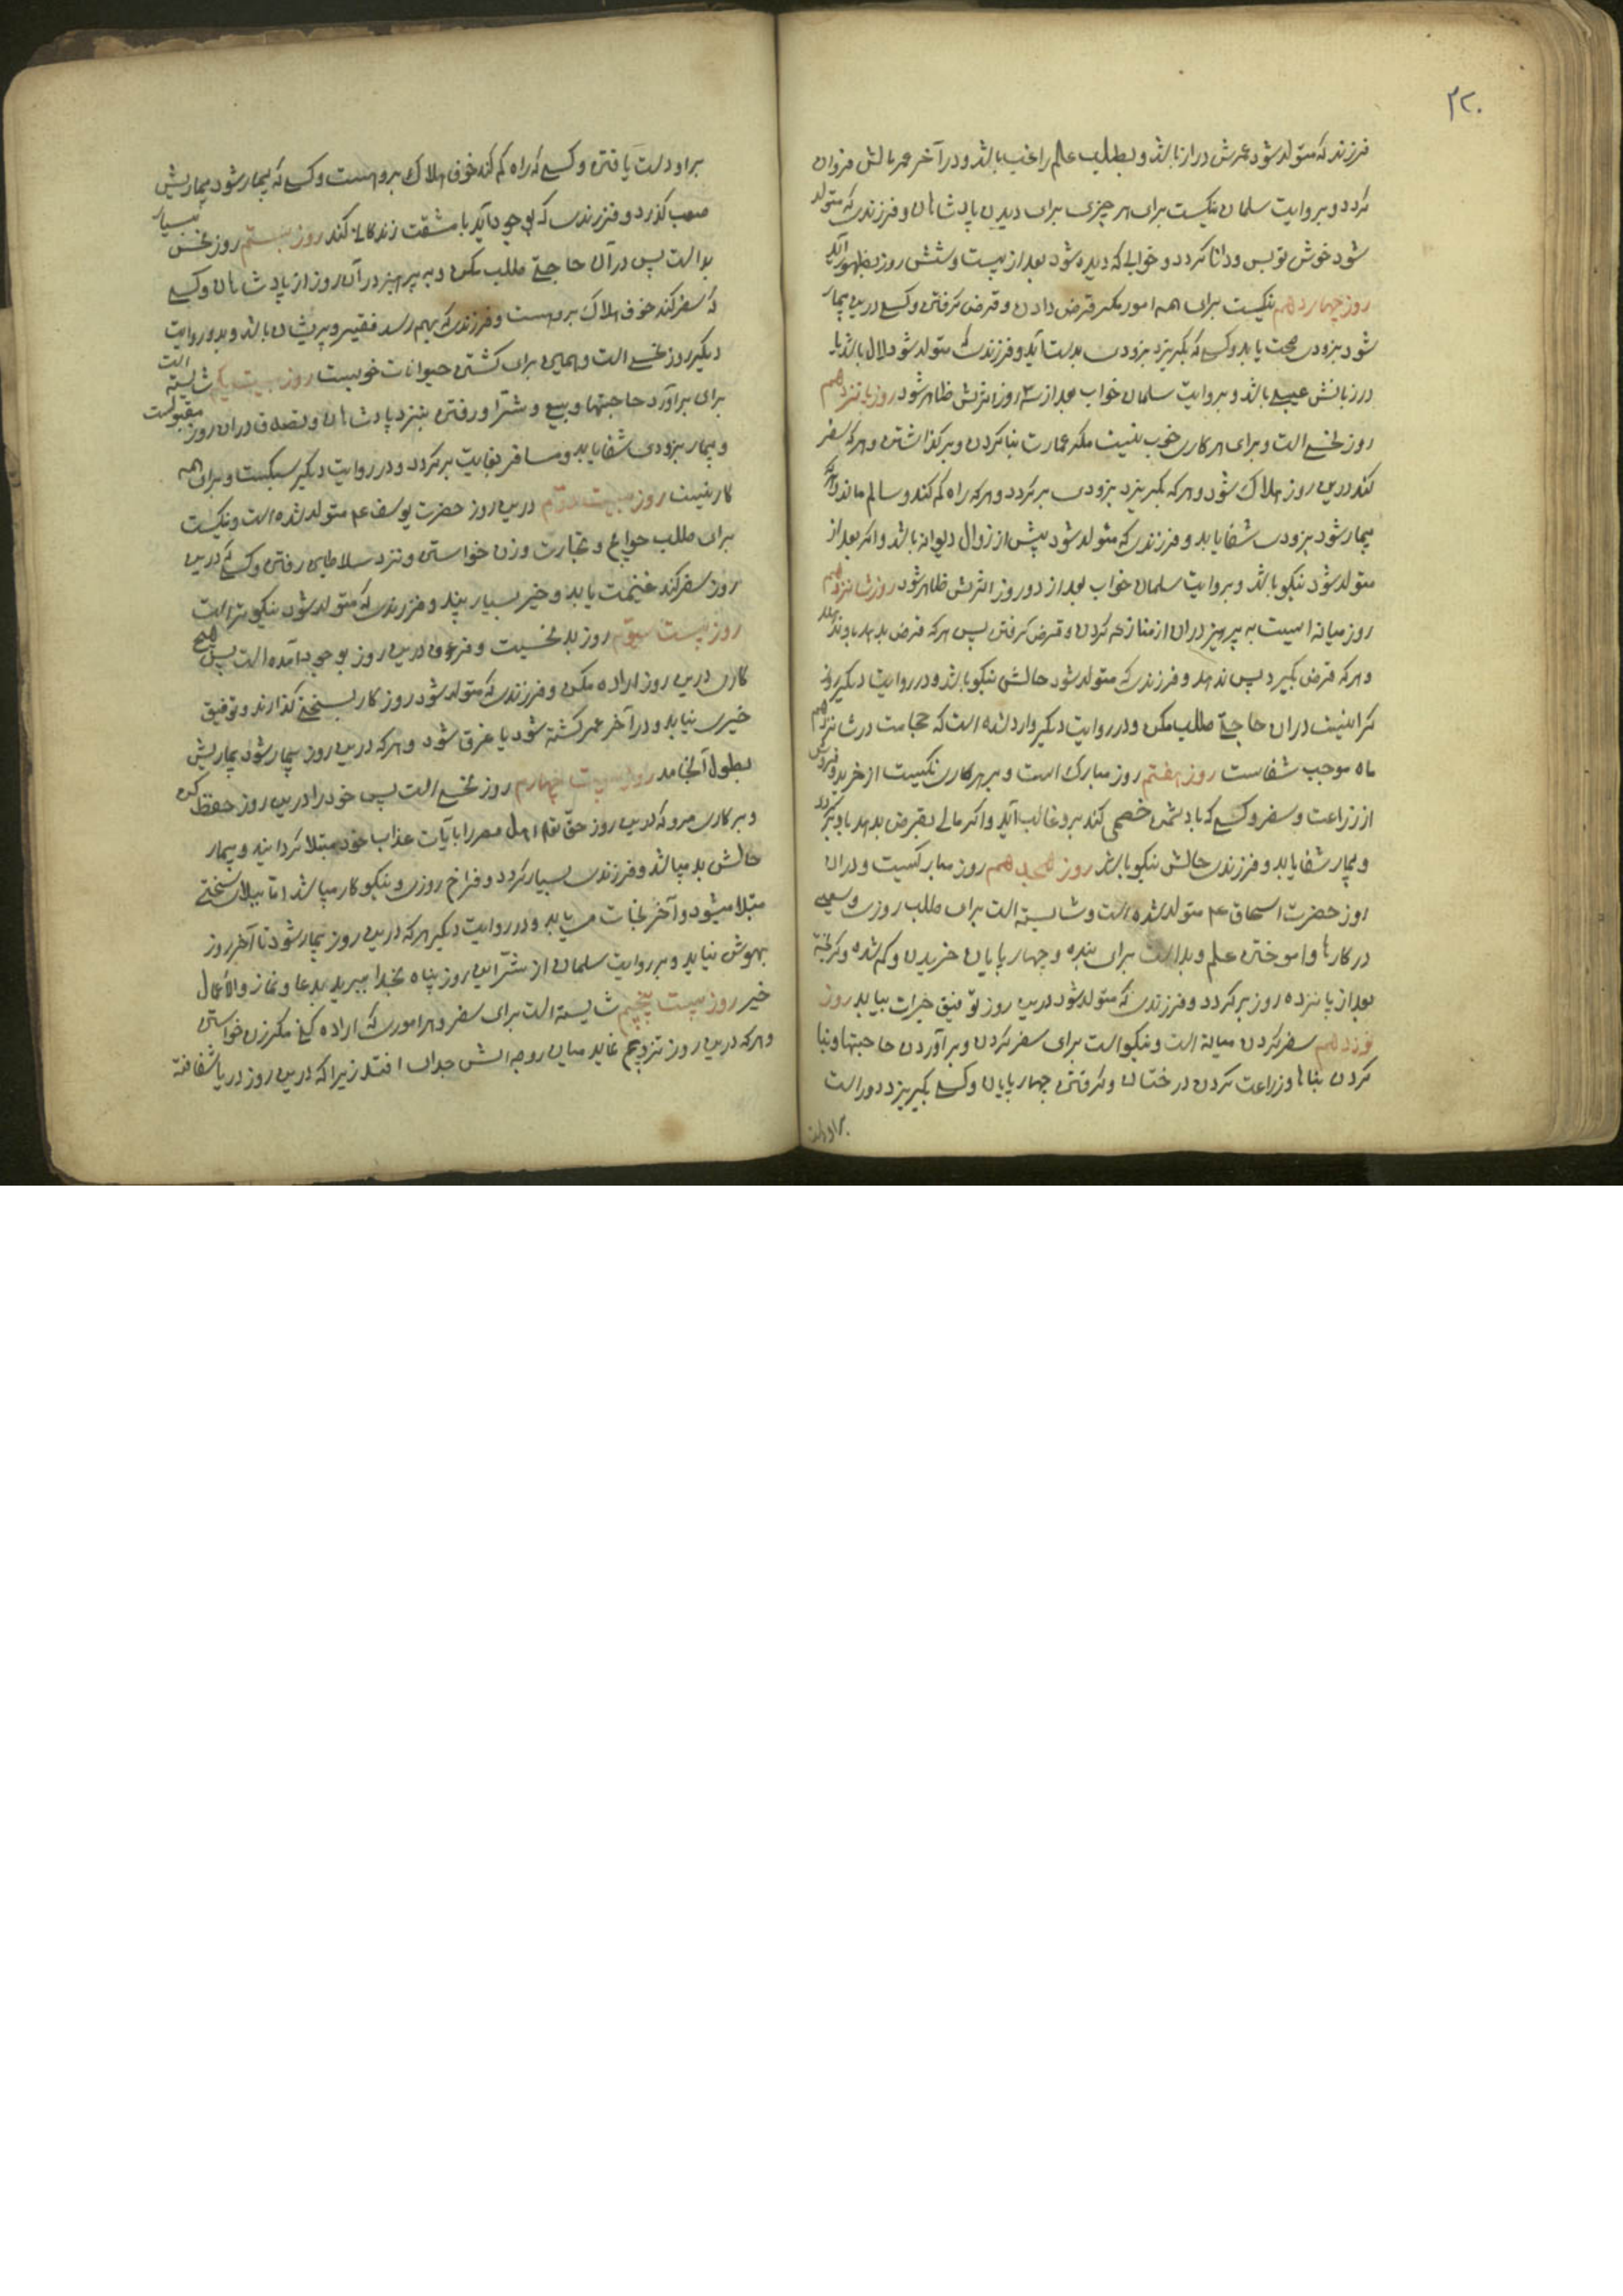 ۲۲۰
فرزند که متولد شود عمرش دراز باشد و بطلب علم راغب باشد و در آخر عمر مالش فراوان
گردد و بروایت سلمان نیکست برای هر چیزی برای دیدن پادشاهان و فرزندی که متولد
شود خوش نویس و دانا گردد و خوابی که دیده شود بعد از بیست و شش روز بظهور آید
روز چهاردهم نیکست برای همه امور مکر قرض دادن و قرض گرفتن و کسی درین بیمار
شود بزودی صحت یابد و کسی که بگریزد بزودی بدست آید و فرزندی که متولد شود لال باشد یا
در زبانش عیبی باشد و بروایت سلمان خواب بعد از ۳ روز اثرش ظاهر شود روز پانزدهم
روز نحسی است و برای هر کاری خوب نیست مکر عمارت بنا کردن و بر گذاشتن و هر که سفر
کند درین روز هلاک شود و هر که بگریزد بزودی برگردد و هر که راه گم کند و سالم ماند و هر که
بیمار شود بزودی شفا یابد و فرزندی که متولد شود پیش از زوال دیوانه باشد و اگر بعد از
متولد شود نیکو باشد و بروایت سلمان خواب بعد از دو روز اثرش ظاهر شود روز شانزدهم
روز میانه است به پرهیز دران از منازعه کردن و قرض گرفتن پس هر که قرض بدهد باو ندهد
و هر که قرض بگیرد پس ندهد و فرزندی که متولد شود حالش نیکو باشد و در روایت دیگر روز
گرانیست دران حاجتی طلب مکن و در روایت دیگر وارد شده است که حجامت در شانزدهم
ماه موجب شفاست روز هفتم روز مبارک است و بر هر کاری نیکست از خرید و فروش
از زراعت و سفر و کسی که با دشمن خصمی کند برو غالب آید و اگر مالی بقرض بدهد باو برگردد
و بیمار شفا یابد و فرزندی حالش نیکو باشد روز هجدهم روز مبارکست و دران
روز حضرت اسحاق ع متولد شده است و شایسته است برای طلب روزی و سعی
در کارها و آموختن علم و بد است برای بنده و چهار پایان خریدن و گم شده و گریخته
بعد از پانزده روز برگردد و فرزندی که متولد شود درین روز توفیق خیرات بیابد روز
نوزدهم سفر کردن میانه است و نیکو است برای سفر کردن و برآوردن حاجتها و بنا
کردن بناها و زراعت کردن درختان و گرفتن چهار پایان و کسی بگریزد دور است
براو دست
براو دست یافتن و کسی که راه گم کند خوف هلاک برو هست و کسی که بیمار شود بیماریش
صعب گذرد و فرزندی که بوجود آید با مشقت زندگانی کند روز بیستم روز نحس بسیار
بد است پس درآن حاجتی طلب مکن و به پرهیز درآن روز از پادشاهان و کسی
که سفر کند خوف هلاک برو هست و فرزندی که بهم رسد فقیر و پریشان باشد و بدو روایت
دیگر روز نحسی است و همین برای کشتن حیوانات خوبست روز بیست یکم شایسته است
برای برآورد حاجتها و بیع و شرا و رفتن بنزد پادشاهان و تصدق دران روز مقبولست
و بیمار بزودی شفا یابد و مسافر بغایت برگردد و در روایت دیگر سبکست و برای همه
کار نیست روز بیست دوم درین روز حضرت یوسف ع متولد شده است و نیکست
برای طلب حوایج و تجارت و زن خواستن و نزد سلاطین رفتن و کسی که درین
روز سفر کند غنیمت یابد و خیر بسیار بیند و فرزندی که متولد شود نیکو تر است
روز بیست سیوم روز بد نحسیت و فرعون درین روز بوجود آمده است پس هیچ
کاری درین روز اراده مکن و فرزندی که متولد شود روزگار بسختی گذراند و توفیق
خیری نیابد و در آخر عمر کشته شود یا غرق شود و هر که درین روز بیمار شود بیماریش
بطول انجامد روز بیست چهارم روز نحسی است پس خود را درین روز حفظ کن
و بر کاری مرو که درین روز حق تعالی اهل مصر را بآیات عذاب خود مبتلا گردانید و بیمار
حالش بد میباشد و فرزندی بسیار گردد و فراخ روزی و نیکو کار میباشد اما ببلای سختی
مبتلا میشود و آخر نجات می یابد و در روایت دیگر هر که درین روز بیمار شود تا آخر روز
بهوش نیاید و بروایت سلمان از شر این روز پناه بخدا ببرید بدعا و نماز و اعمال
خیر روز بیست پنجم شایسته است برای سفر و هر اموری که اراده کنی مکر زن خواستن
و هر که درین روز تزویج نماید میان زوجه اش جدائی افتد زیرا که درین روز دریا شکافته